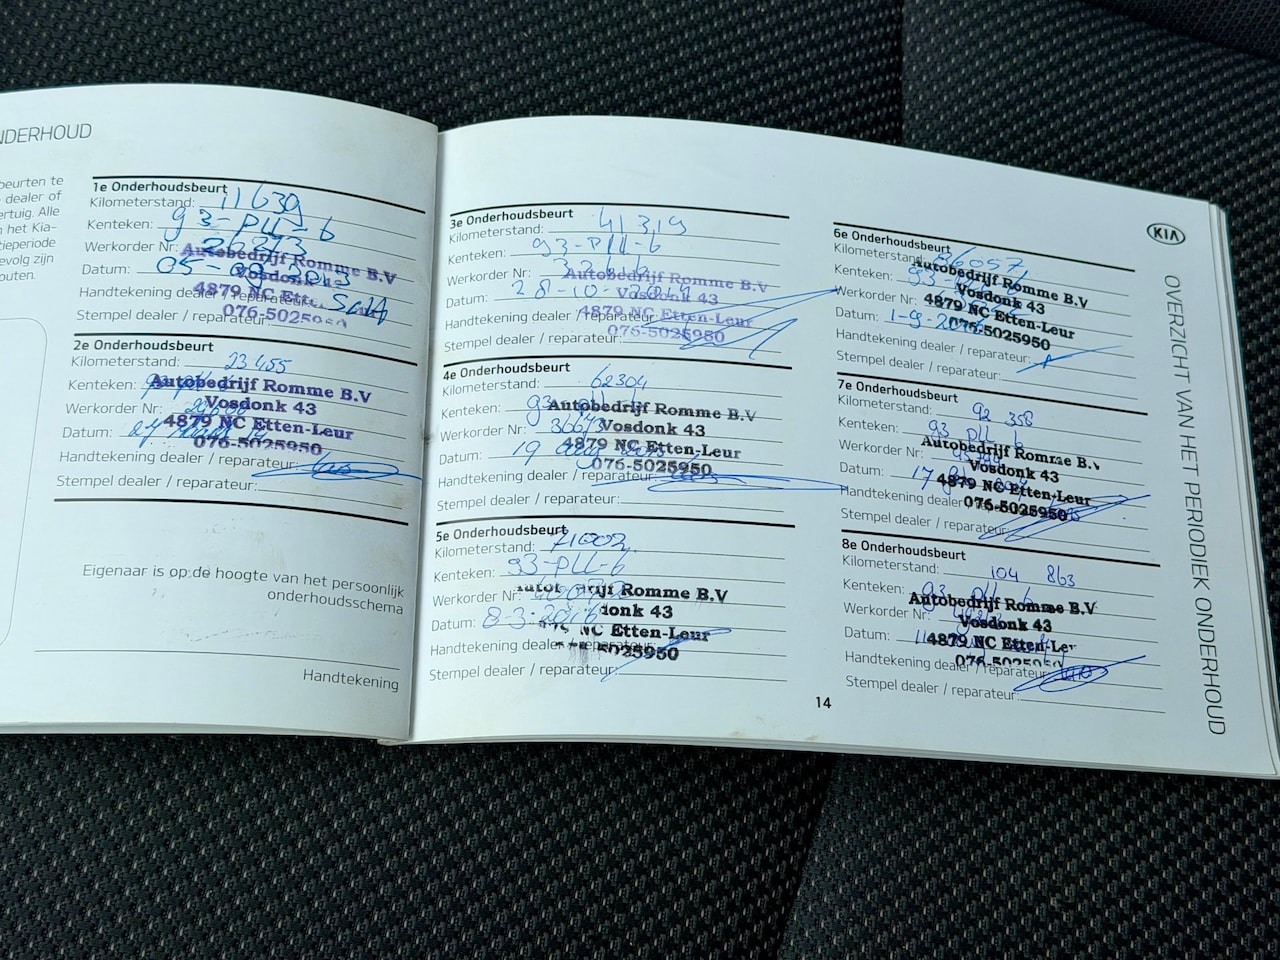 NDERHOUD
beurten te
dealer of
ertuig. Alle
het Kia-
tieperiode
evolg zijn
outen.
1e Onderhoudsbeurt
Kilometerstand: 11639
Kenteken: 93-PLL-6
Werkorder Nr:
Autobedrijf Romme B.V
Vosdonk 43
Datum: 05-09-2013
4879 NC Ett
Handtekening dealer / reparateur:
076-5025950
Stempel dealer / reparateur:
2e Onderhoudsbeurt
Kilometerstand: 23455
Kenteken:
Autobedrijf Romme B.V
Werkorder Nr:
Vosdonk 43
Datum:
4879 NC Etten-Leur
076-5025950
Handtekening dealer / reparateur:
Stempel dealer / reparateur:
Eigenaar is op de hoogte van het persoonlijk
onderhoudsschema
Handtekening
3e Onderhoudsbeurt
Kilometerstand: 41319
Kenteken: 93-PLL-6
Werkorder Nr:
Autobedrijf Romme B.V
Datum: 28-10-
Vosdonk 43
4879 NC Etten-Leur
Handtekening dealer / reparateur:
076-5025950
Stempel dealer / reparateur:
4e Onderhoudsbeurt
Kilometerstand: 62304
Kenteken: 93
Autobedrijf Romme B.V
Werkorder Nr: 36643
Vosdonk 43
Datum: 19
4879 NC Etten-Leur
076-5025950
Handtekening dealer / reparateur:
Stempel dealer / reparateur:
5e Onderhoudsbeurt
Kilometerstand: 71002
Kenteken: 93-PLL-6
Werkorder Nr:
Romme B.V
Datum: 8-3-2016
donk 43
NC Etten-Leur
Handtekening dealer / reparateur:
5025950
Stempel dealer / reparateur:
14
6e Onderhoudsbeurt
Kilometerstand: 86057
Kenteken: 93
Autobedrijf Romme B.V
Werkorder Nr:
Vosdonk 43
4879 NC Etten-Leur
Datum: 1-9-
076-5025950
Handtekening dealer / reparateur:
Stempel dealer / reparateur:
7e Onderhoudsbeurt
Kilometerstand: 92 358
Kenteken: 93 PLL 6
Autobedrijf Romme B.V
Werkorder Nr:
Vosdonk 43
Datum: 17
4879 NC Etten-Leur
Handtekening dealer
076-5025950
Stempel dealer / reparateur:
8e Onderhoudsbeurt
Kilometerstand: 104 863
Kenteken: 93 PLL 6
Autobedrijf Romme B.V
Werkorder Nr:
Vosdonk 43
Datum:
4879 NC Etten-Leur
Handtekening dealer / reparateur:
Stempel dealer / reparateur:
KIA
OVERZICHT VAN HET PERIODIEK ONDERHOUD